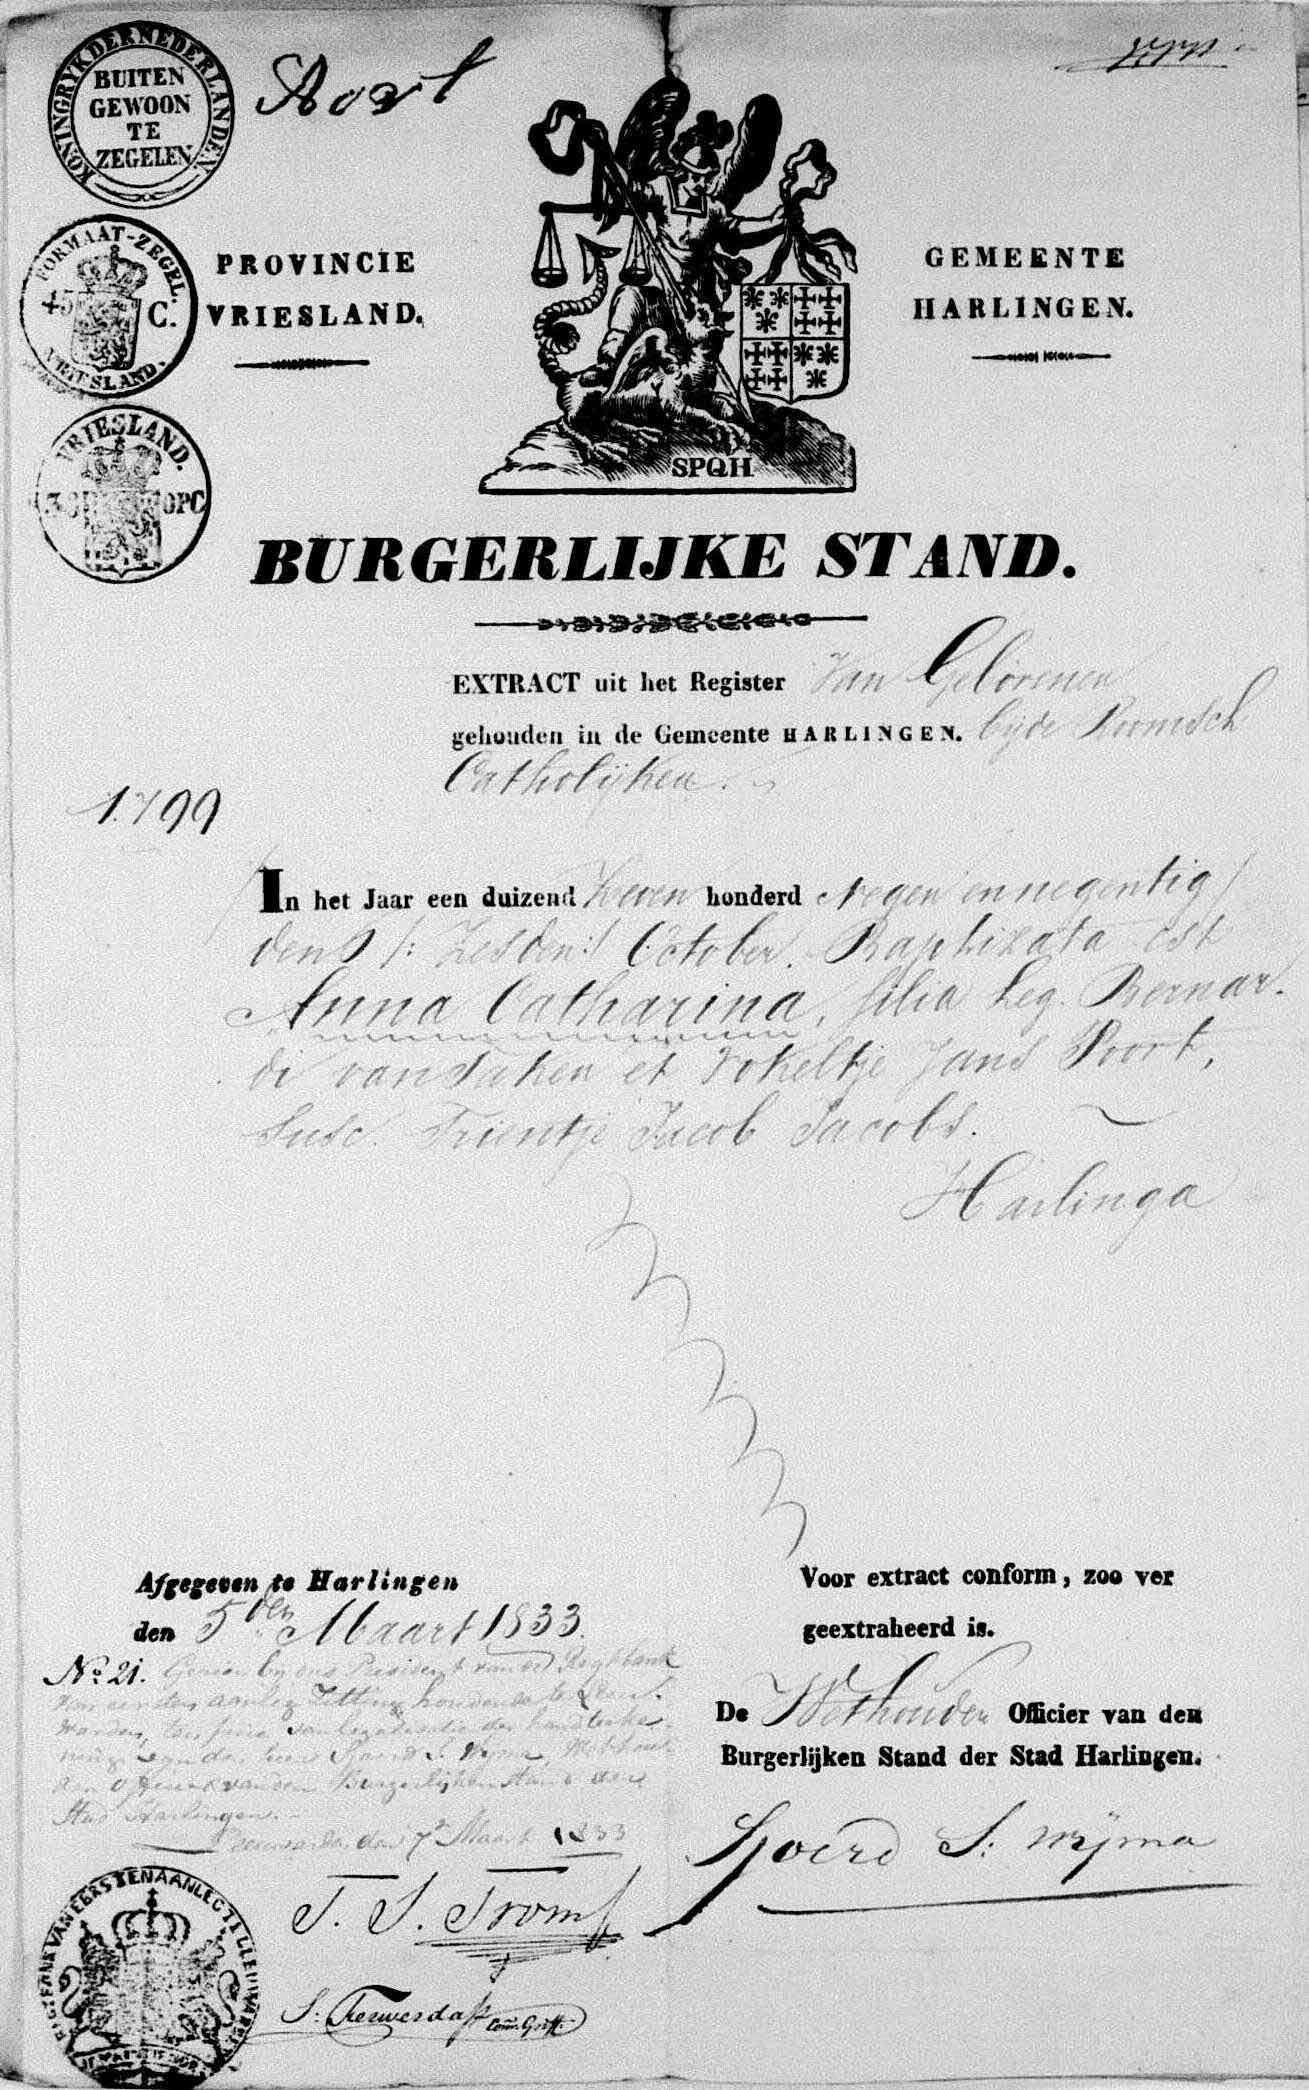 KONINGRYK DER NEDERLANDEN
BUITEN
GEWOON
TE
ZEGELEN
FORMAAT-ZEGEL.
45 C.
VRIESLAND.
PROVINCIE
VRIESLAND.
GEMEENTE
HARLINGEN.
VRIESLAND.
38 OPC
SPQH
BURGERLIJKE STAND.
EXTRACT uit het Register Van Geborenen
gehouden in de Gemeente HARLINGEN. bijde Roomsch
Catholijken.
1799
In het Jaar een duizend Zeven honderd Negen en negentig
den 6 /: Zesden :/ October. Baptizata est
Anna Catharina, filia Leg. Bernar-
di van Saken et Fokeltje Jans Poort,
Susc. Trientje Jacob Jacobs.
Harlinga
Afgegeven te Harlingen
den 5den Maart 1833.
Voor extract conform, zoo ver
geextraheerd is.
No. 21. Gezien by ons President van de Regtbank
van eersten aanleg Zitting houdende te Leeu-
warden, ten fine van legalisatie der handteeke-
ning van den heer Sjoerd S. Wijma, Wethou-
der Officier van den Burgerlijken Stand der
Stad Harlingen.
Leeuwarden den 7e Maart 1833
De Wethouder Officier van den
Burgerlijken Stand der Stad Harlingen.
Sjoerd S: Wijma
REGTBANK VAN EERSTEN AANLEG TE LEEUWARDEN
T. S. Tromp